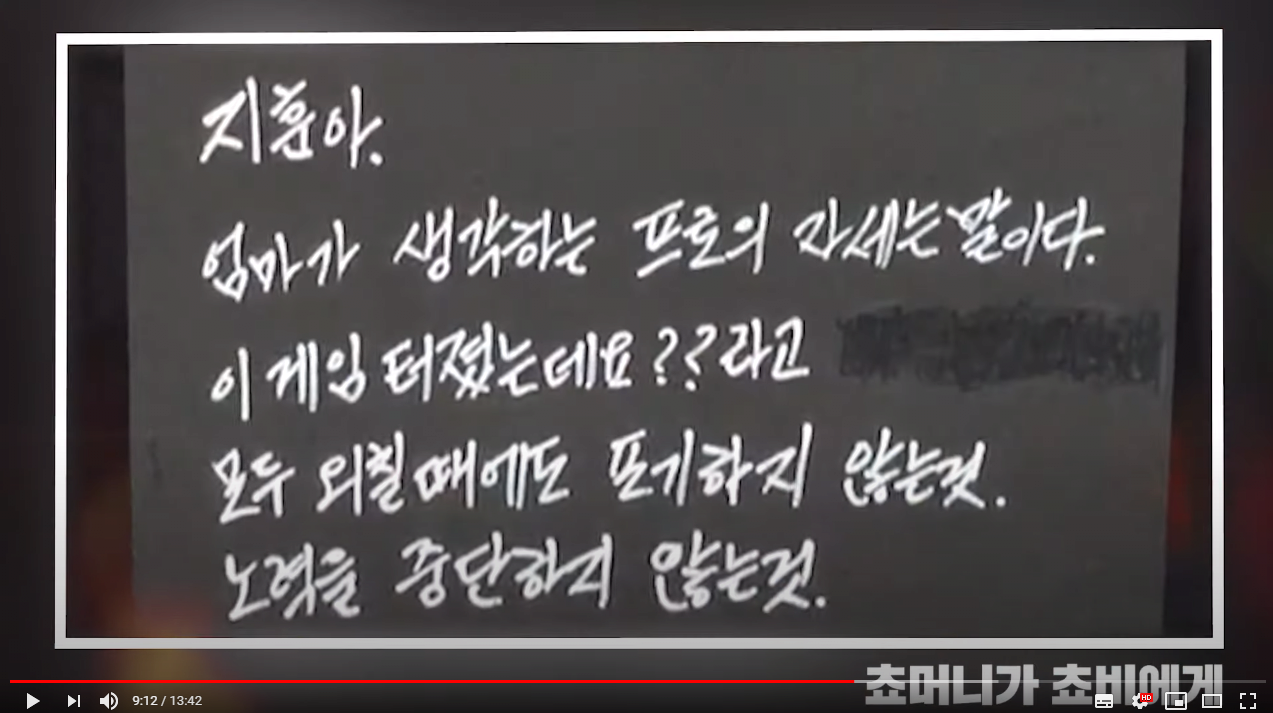 지훈아.
엄마가 생각하는 프로의 자세는 말이다.
이 게임 터졌는데요??라고
모두 외칠 때에도 포기하지 않는것.
노력을 중단하지 않는것.
쵸머니가 쵸비에게
9:12 / 13:42
HD